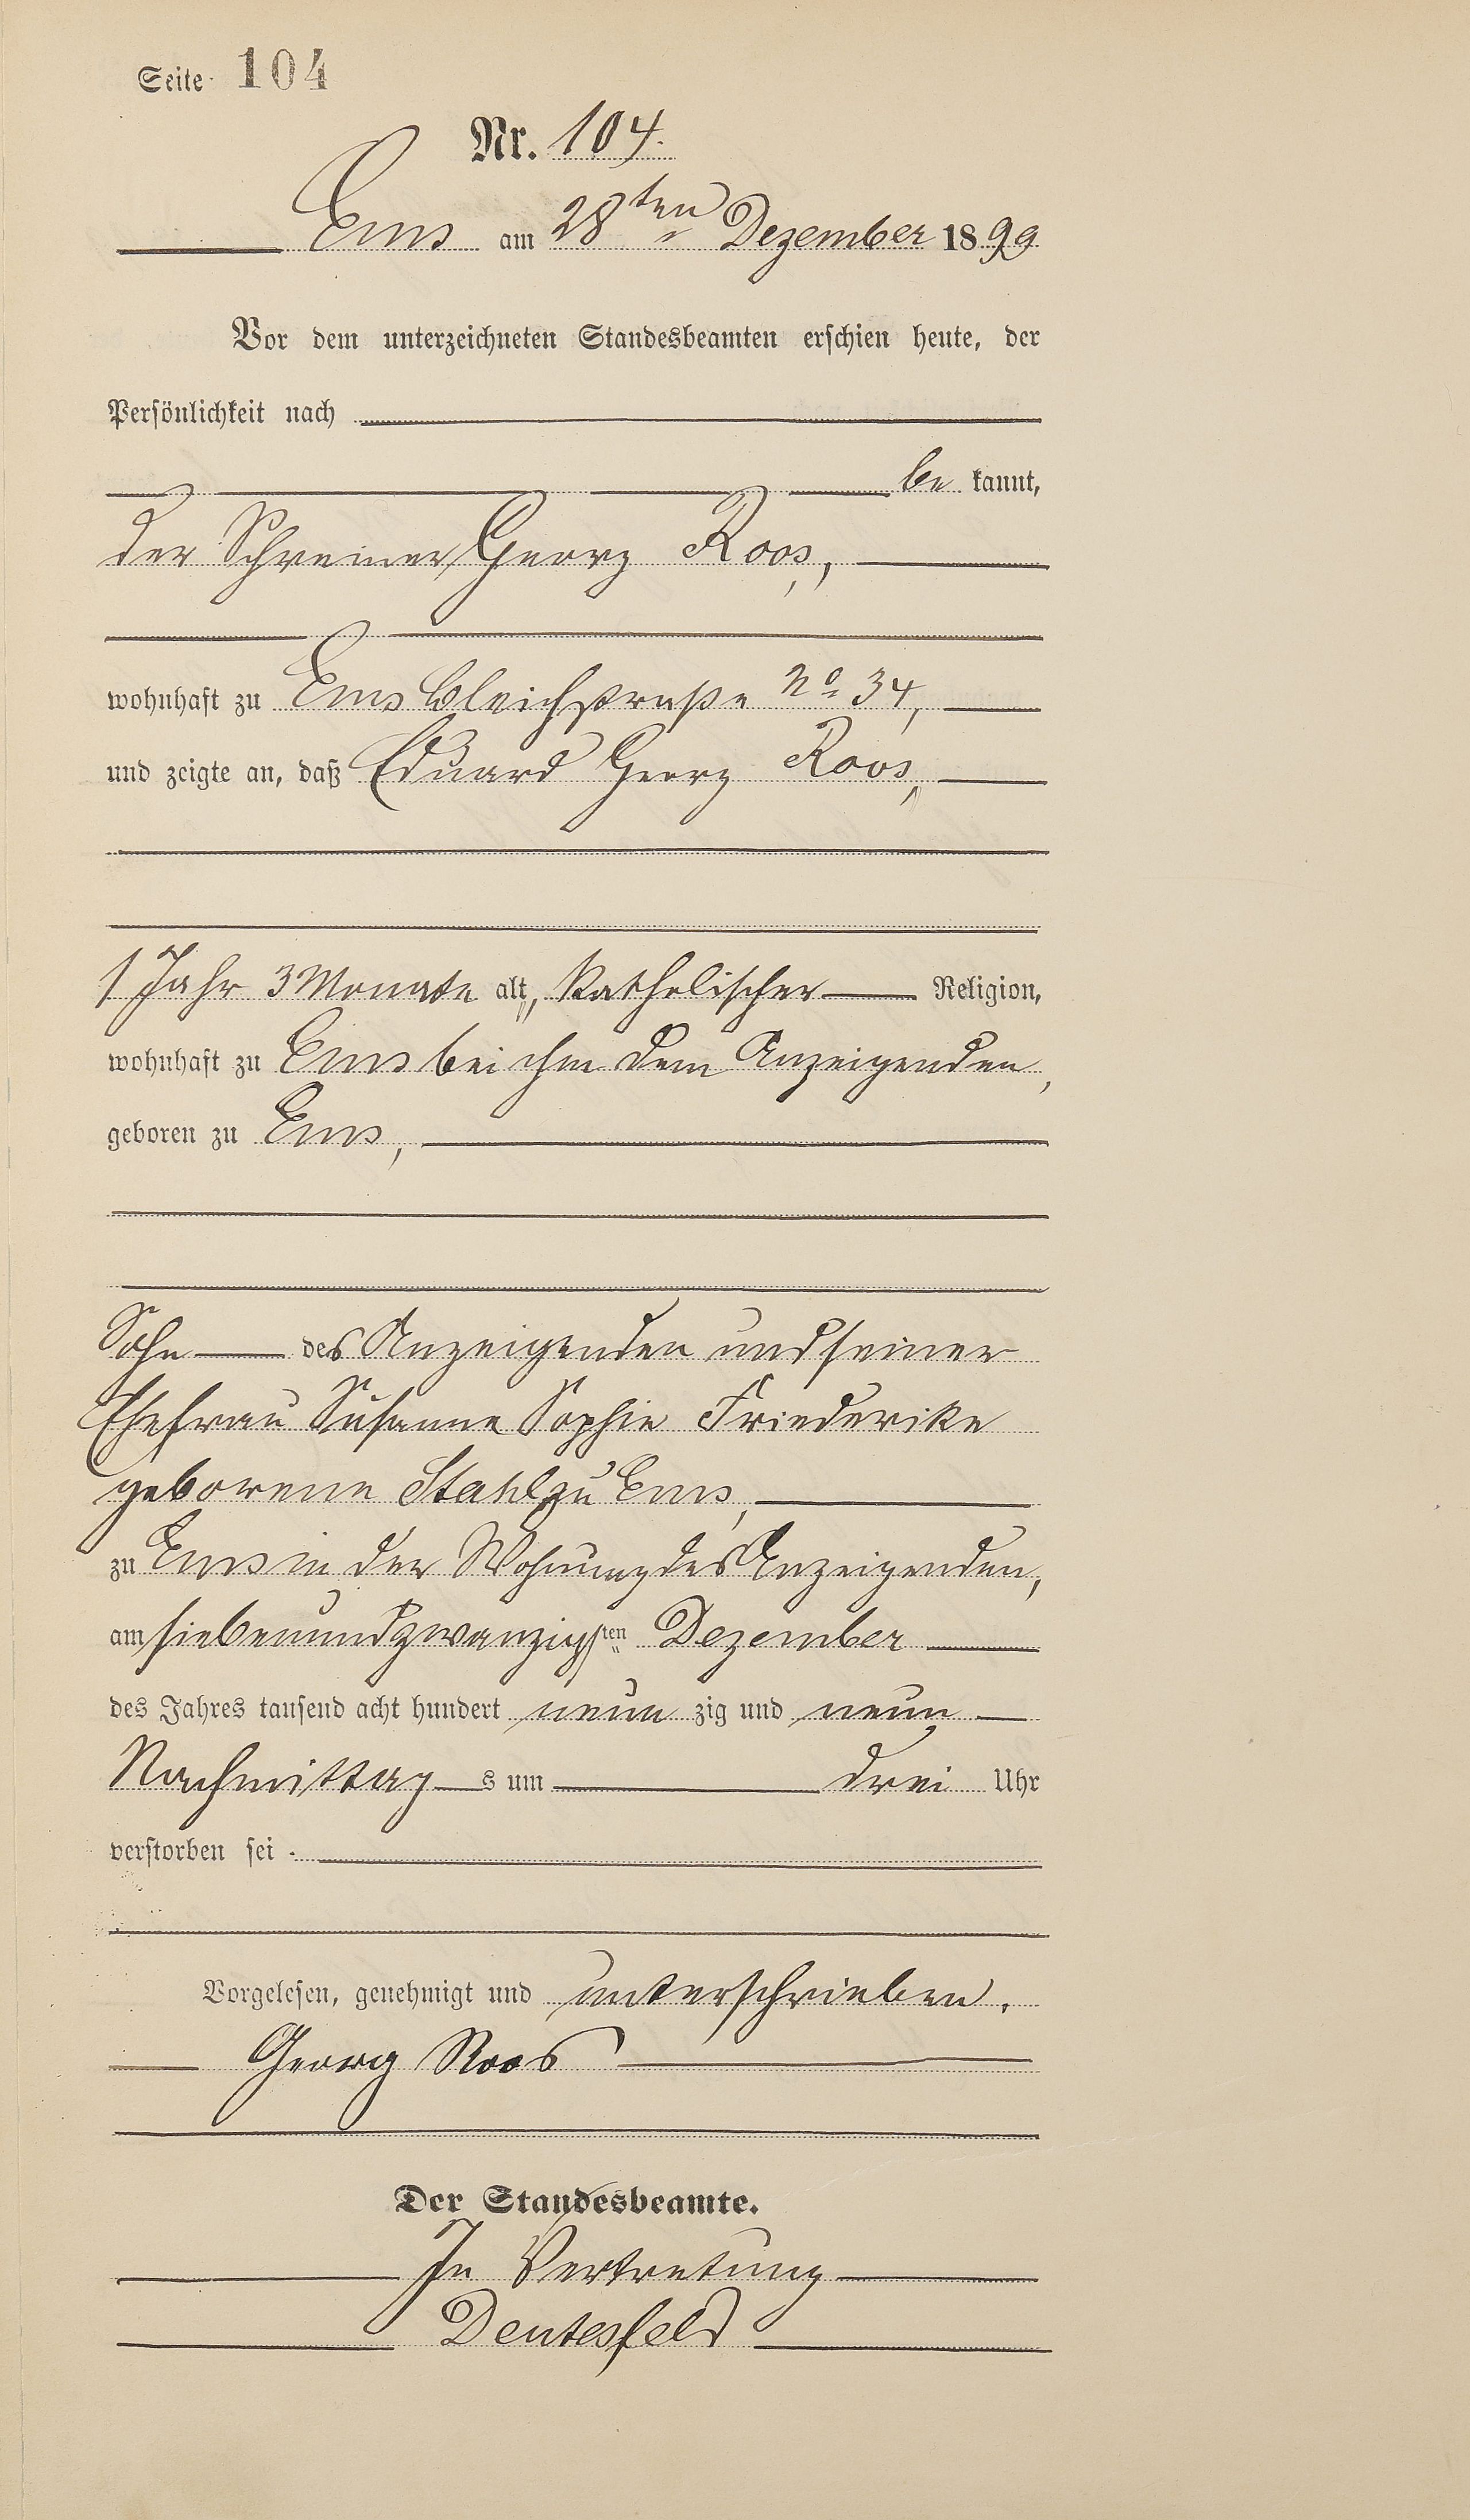 Seite 104
Nr. 104.
Ems am 28ten Dezember 1899
Vor dem unterzeichneten Standesbeamten erschien heute, der
Persönlichkeit nach
be kannt,
der Schreiner Georg Roos,
wohnhaft zu Ems Bleichstraße No 34,
und zeigte an, daß Eduard Georg Roos,
1 Jahr 3 Monate alt, katholischer Religion,
wohnhaft zu Ems bei ihm dem Anzeigenden,
geboren zu Ems,
Sohn des Anzeigenden und seiner
Ehefrau Susanne Sophie Friederike
geborene Stahl zu Ems,
zu Ems in der Wohnung des Anzeigenden,
am siebenundzwanzigsten Dezember
des Jahres tausend acht hundert neun zig und neun
Nachmittag s um drei Uhr
verstorben sei.
Vorgelesen, genehmigt und unterschrieben.
Georg Roos
Der Standesbeamte.
In Vertretung
Deutesfeld